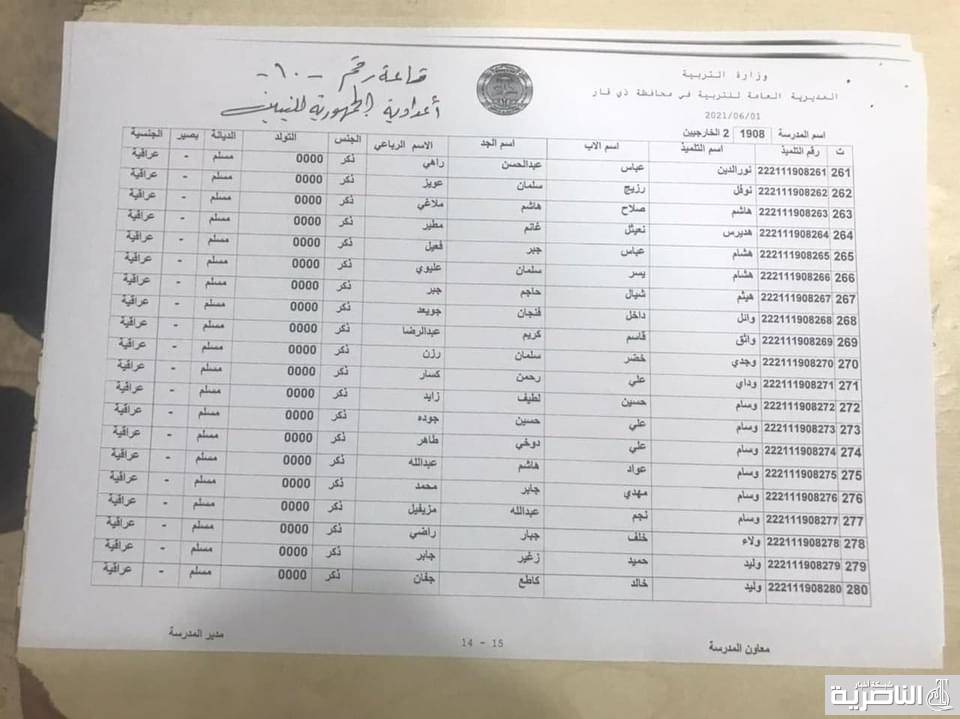 وزارة التربية
المديرية العامة للتربية في محافظة ذي قار
2021/06/01
قاعة رقم -١٠-
أعدادية الجمهورية للبنين
اسم المدرسة 1908 2 الخارجيين
ت رقم التلميذ اسم التلميذ اسم الاب اسم الجد الاسم الرباعي الجنس التولد الديانة بصير الجنسية
261 222111908261 نورالدين عباس عبدالحسن راهي ذكر 0000 مسلم - عراقية
262 222111908262 نوفل رزيج سلمان عويز ذكر 0000 مسلم - عراقية
263 222111908263 هاشم صلاح هاشم ملاغي ذكر 0000 مسلم - عراقية
264 222111908264 هديرس نعيثل غانم مطير ذكر 0000 مسلم - عراقية
265 222111908265 هشام عباس جبر فعيل ذكر 0000 مسلم - عراقية
266 222111908266 هشام يسر سلمان عليوي ذكر 0000 مسلم - عراقية
267 222111908267 هيثم شيال حاجم جبر ذكر 0000 مسلم - عراقية
268 222111908268 وائل داخل فنجان جويعد ذكر 0000 مسلم - عراقية
269 222111908269 واثق قاسم كريم عبدالرضا ذكر 0000 مسلم - عراقية
270 222111908270 وجدي خضر سلمان رزن ذكر 0000 مسلم - عراقية
271 222111908271 وداي علي رحمن كسار ذكر 0000 مسلم - عراقية
272 222111908272 وسام حسين لطيف زايد ذكر 0000 مسلم - عراقية
273 222111908273 وسام علي حسين جوده ذكر 0000 مسلم - عراقية
274 222111908274 وسام علي دوخي طاهر ذكر 0000 مسلم - عراقية
275 222111908275 وسام عواد هاشم عبدالله ذكر 0000 مسلم - عراقية
276 222111908276 وسام مهدي جابر محمد ذكر 0000 مسلم - عراقية
277 222111908277 وسام نجم عبدالله مزيفيل ذكر 0000 مسلم - عراقية
278 222111908278 ولاء خلف جبار راضي ذكر 0000 مسلم - عراقية
279 222111908279 وليد حميد زغير جابر ذكر 0000 مسلم - عراقية
280 222111908280 وليد خالد كاطع جفان ذكر 0000 مسلم - عراقية
معاون المدرسة
14 - 15
مدير المدرسة
شبكة أخبار
الناصرية